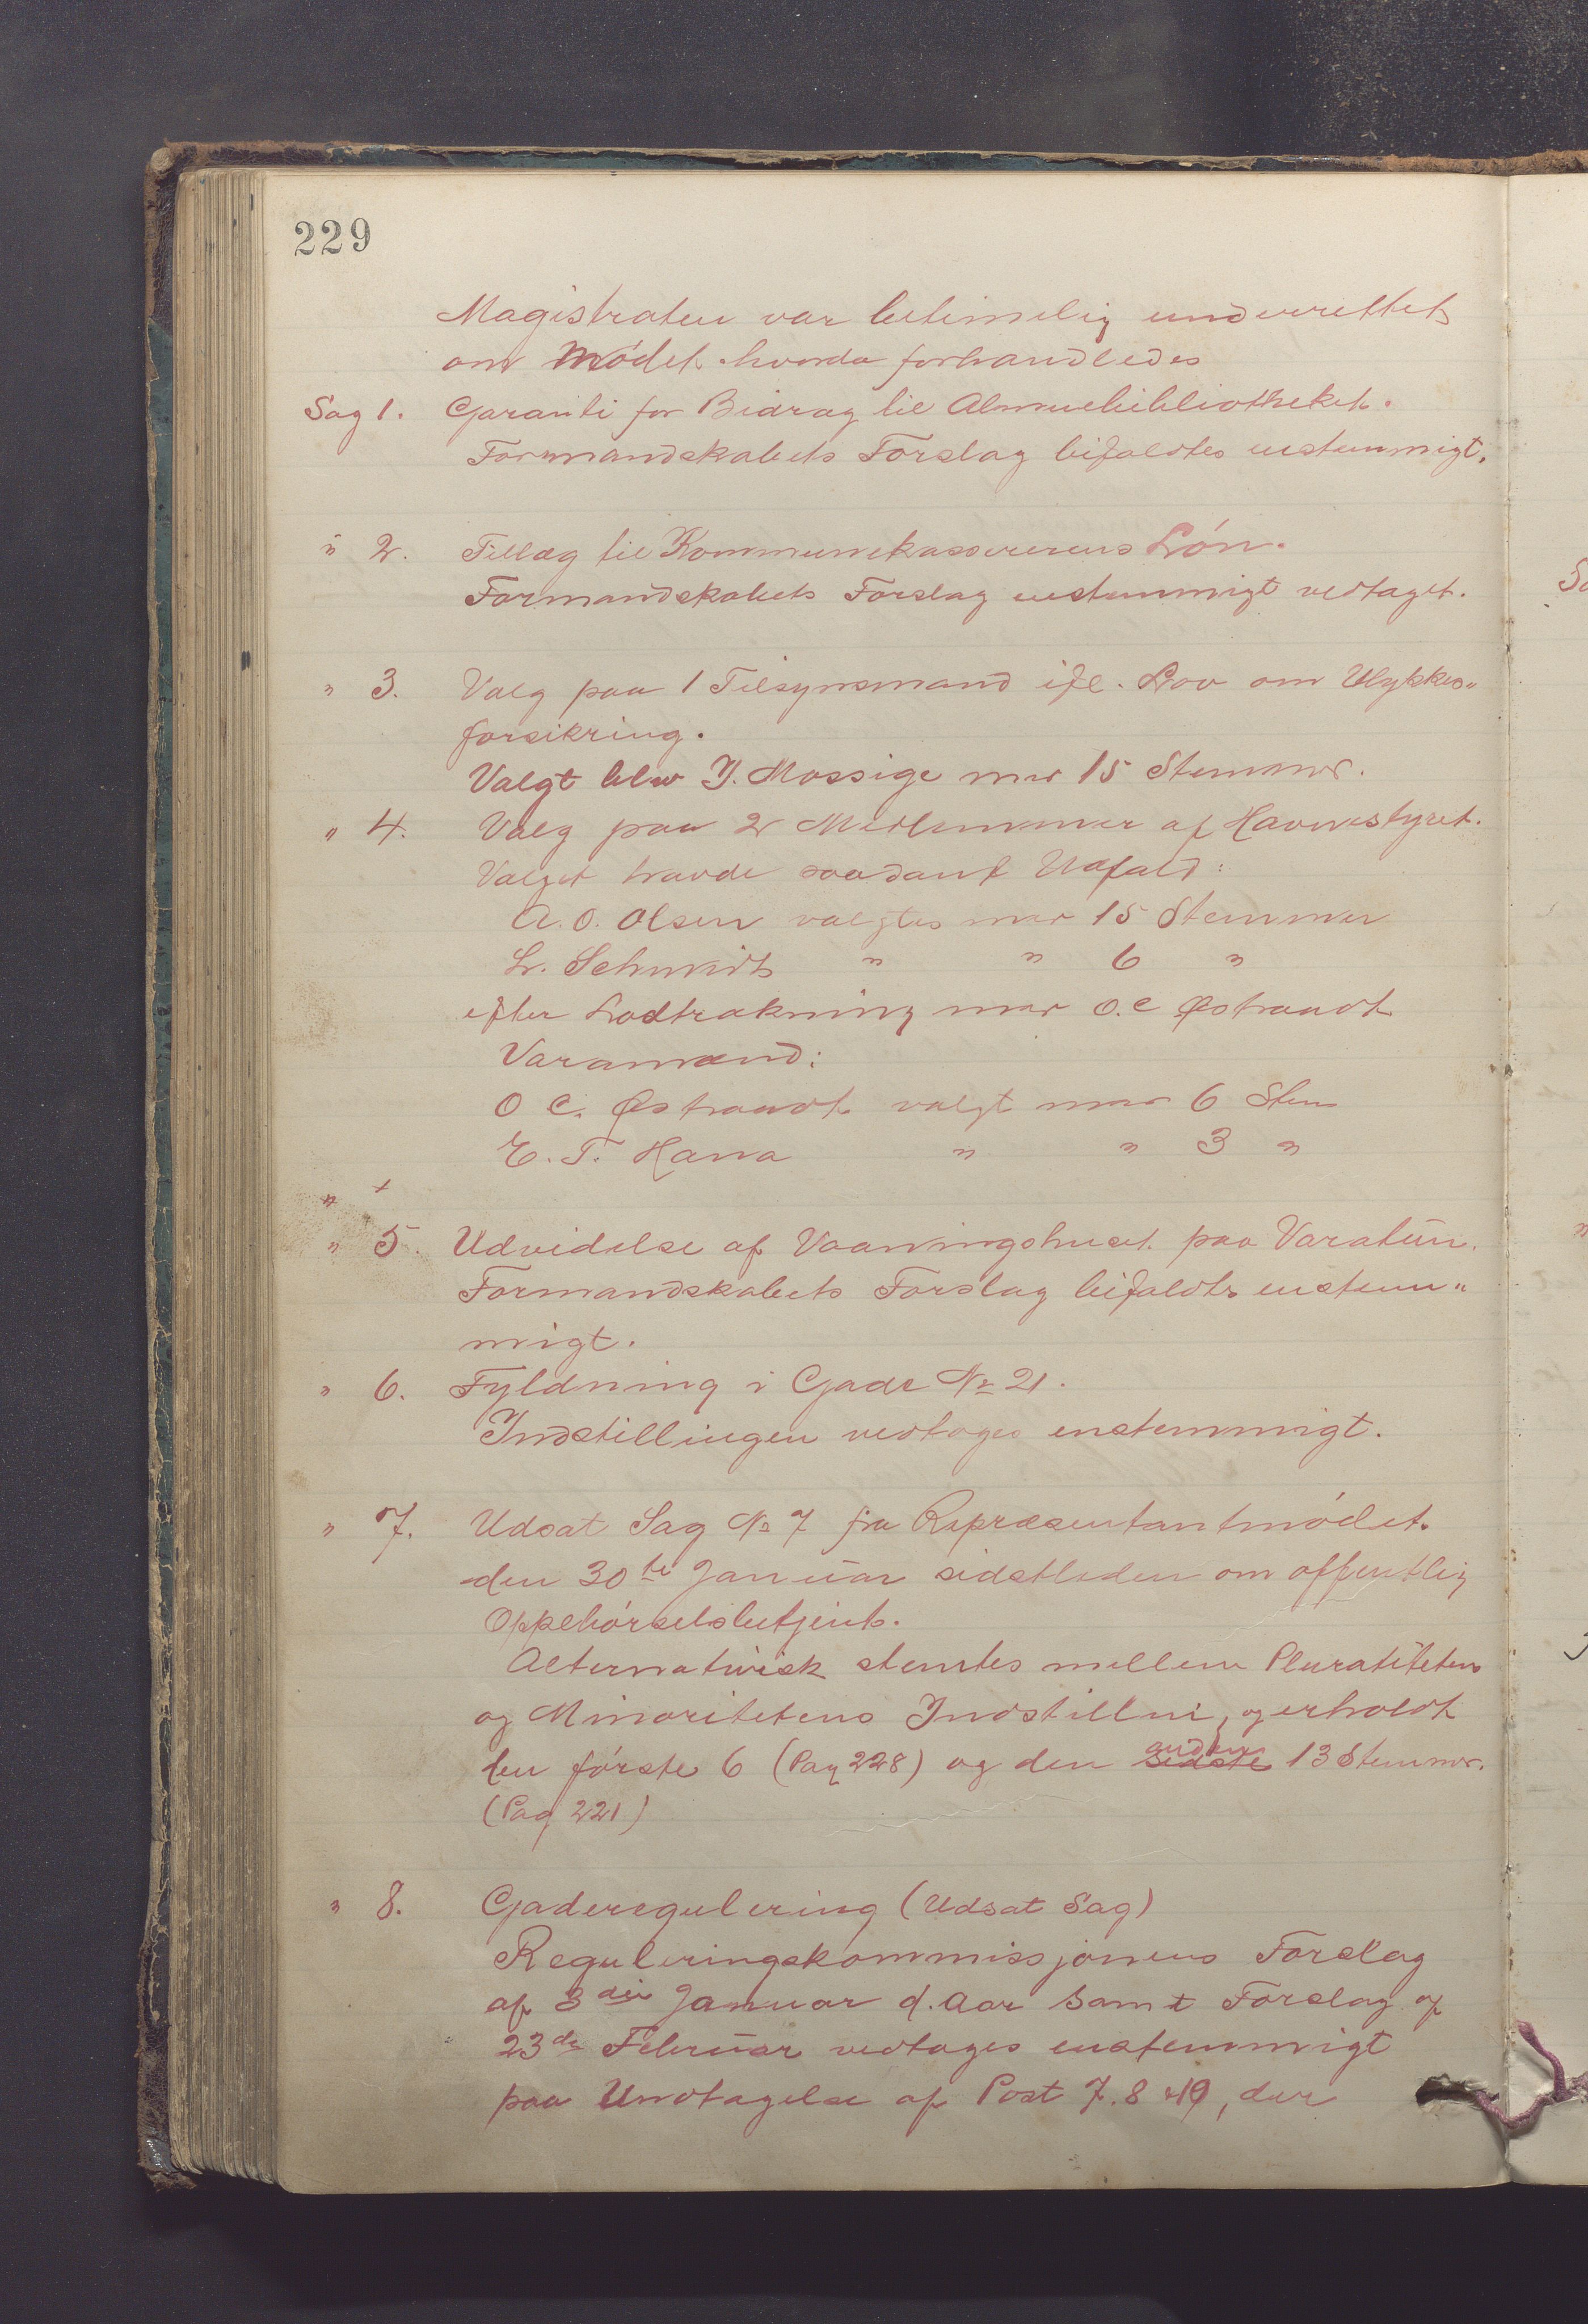 229
Magistraten var betimelig underrettet
om Mødet hvorda forhandledes
Sag 1. Garanti for Bidrag til Almuebibliotheket.
Formandskabets Forslag bifaldtes enstemmigt.
" 2. Tillæg til Kommunekassererens Løn.
Formandskabets Forslag enstemmigt vedtaget.
" 3. Valg paa 1 Tilsynsmand ifl. Lov om Ulykkes"
forsikring.
Valgt blev I. Mossige med 15 Stemmer.
" 4. Valg paa 2 Medlemmer af Havnestyret.
Valget havde saadant Udfald:
A. O. Olsen valgtes med 15 Stemmer
L. Schmidt " " 6 "
efter Lodtrækning med O. C Østraadt
Varamænd:
O C. Østraadt valgt med 6 Stem
E. T. Hana " " 3 "
"
" 5. Udvidelse af Vaaningshuset paa Varatun.
Formandskabets Forslag bifaldts enstem"
migt.
" 6. Fyldning i Gade № 21.
Indstillingen vedtages enstemmigt.
" 7. Udsat Sag № 7 fra Repræsentantmødet
den 30te Januar sidstleden om offentlig
Oppebørselsbetjent.
Alternativisk stemtes mellem Pluratiteten
og Minoritetens Indstillni, og erholdt
den første 6 (Pag 228) og den sidste anden 13 Stemmer.
(Pag 221)
" 8. Gaderegulering (Udsat Sag)
Reguleringskommissjonens Forslag
af 3die Januar d. Aar samt Forslag af
23de Februar vedtages enstemmigt
paa Undtagelse af Post 7. 8 & 19, der